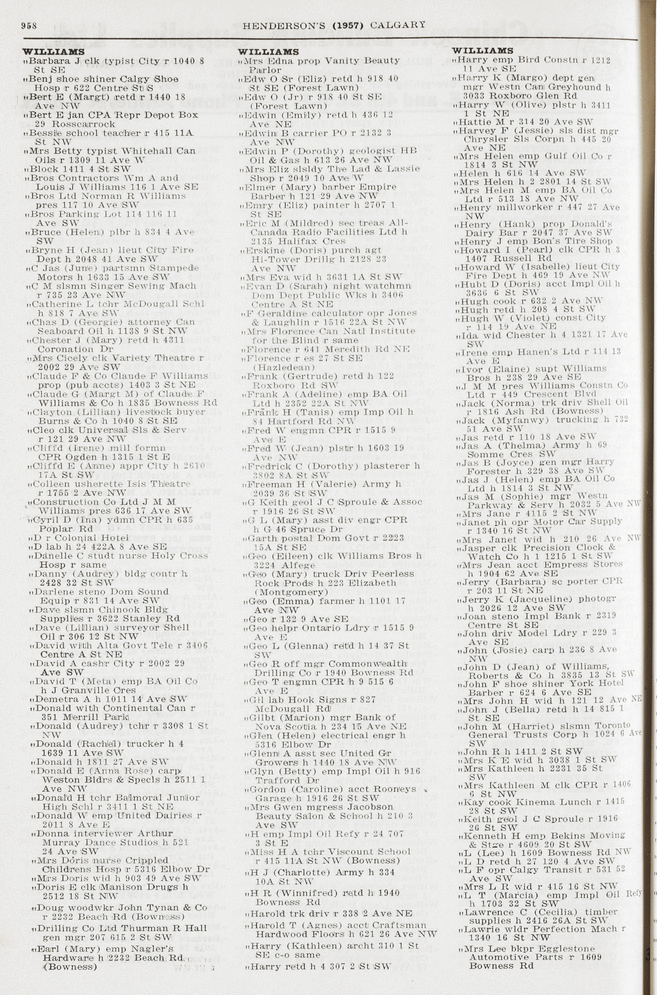 958
HENDERSON'S (1957) CALGARY
WILLIAMS
"Barbara J clk typist City r 1040 8
St SE
"Benj shoe shiner Calgy Shoe
Hosp r 622 Centre St S
"Bert E (Margt) retd r 1440 18
Ave NW
"Bert E jan CPA Repr Depot Box
29 Rosscarrock
"Bessie school teacher r 415 11A
St NW
"Mrs Betty typist Whitehall Can
Oils r 1309 11 Ave W
"Block 1411 4 St SW
"Bros Contractors Wm A and
Louis J Williams 116 1 Ave SE
"Bros Ltd Norman R Williams
pres 117 10 Ave SW
"Bros Parking Lot 114 116 11
Ave SW
"Bruce (Helen) plbr h 834 4 Ave
SW
"Bryne H (Jean) lieut City Fire
Dept h 2048 41 Ave SW
"C Jas (June) partsmn Stampede
Motors h 1633 15 Ave SW
"C M slsmn Singer Sewing Mach
r 735 23 Ave NW
"Catherine L tchr McDougall Schl
h 818 7 Ave SW
"Chas D (Georgie) attorney Can
Seaboard Oil h 1138 9 St NW
"Chester J (Mary) retd h 4311
Coronation Dr
"Mrs Cicely clk Variety Theatre r
2002 29 Ave SW
"Claude F & Co Claude F Williams
prop (pub accts) 1403 3 St NE
"Claude G (Margt M) of Claude F
Williams & Co h 1835 Bowness Rd
"Clayton (Lillian) livestock buyer
Burns & Co h 1040 8 St SE
"Cleo clk Universal Sls & Serv
r 121 29 Ave NW
"Cliffd (Irene) mill formn
CPR Ogden h 1315 1 St E
"Cliffd E (Anne) appr City h 2610
17A St SW
"Colleen usherette Isis Theatre
r 1765 2 Ave NW
"Construction Co Ltd J M M
Williams pres 636 17 Ave SW
"Cyril D (Ina) ydmn CPR h 635
Poplar Rd
"D r Colonial Hotel
"D lab h 24 422A 8 Ave SE
"Danelle C studt nurse Holy Cross
Hosp r same
"Danny (Audrey) bldg contr h
2428 32 St SW
"Darlene steno Dom Sound
Equip r 831 14 Ave SW
"Dave slsmn Chinook Bldg
Supplies r 3622 Stanley Rd
"Dave (Lillian) surveyor Shell
Oil r 306 12 St NW
"David with Alta Govt Tele r 3406
Centre A St NE
"David A cashr City r 2002 29
Ave SW
"David T (Meta) emp BA Oil Co
h J Granville Cres
"Demetra A h 1011 14 Ave SW
"Donald with Continental Can r
351 Merrill Park
"Donald (Audrey) tchr r 3308 1 St
NW
"Donald (Rachel) trucker h 4
1639 11 Ave SW
"Donald h 1811 27 Ave SW
"Donald E (Anna Rose) carp
Weston Bldrs & Specls h 2511 1
Ave NW
"Donald H tchr Balmoral Junior
High Schl r 3411 1 St NE
"Donald W emp United Dairies r
2011 8 Ave E
"Donna interviewer Arthur
Murray Dance Studios h 521
24 Ave SW
"Mrs Doris nurse Crippled
Childrens Hosp r 5316 Elbow Dr
"Mrs Doris wid h 903 49 Ave SW
"Doris E clk Manison Drugs h
2512 18 St NW
"Doug woodwkr John Tynan & Co
r 2232 Beach Rd (Bowness)
"Drilling Co Ltd Thurman R Hall
gen mgr 207 615 2 St SW
"Earl (Mary) emp Nagler's
Hardware h 2232 Beach Rd
(Bowness)
WILLIAMS
"Mrs Edna prop Vanity Beauty
Parlor
"Edw O Sr (Eliz) retd h 918 40
St SE (Forest Lawn)
"Edw O (Jr) r 918 40 St SE
(Forest Lawn)
"Edwin (Emily) retd h 436 12
Ave NE
"Edwin B carrier PO r 2132 3
Ave NW
"Edwin P (Dorothy) geologist HB
Oil & Gas h 613 26 Ave NW
"Mrs Eliz slsldy The Lad & Lassie
Shop r 2049 10 Ave W
"Elmer (Mary) barber Empire
Barber h 121 29 Ave NW
"Emry (Eliz) painter h 2707 1
St SE
"Eric M (Mildred) sec treas All-
Canada Radio Facilities Ltd h
2135 Halifax Cres
"Erskine (Doris) purch agt
Hi-Tower Drillg h 2128 23
Ave NW
"Mrs Eva wid h 3631 1A St SW
"Evan D (Sarah) night watchmn
Dom Dept Public Wks h 3406
Centre A St NE
"F Geraldine calculator opr Jones
& Laughlin r 1516 22A St NW
"Mrs Florence Can Natl Institute
for the Blind r same
"Florence r 641 Meredith Rd NE
"Florence r es 27 St SE
(Hazledean)
"Frank (Gertrude) retd h 122
Roxboro Rd SW
"Frank A (Adeline) emp BA Oil
Ltd h 2352 22A St NW
"Frank H (Tanis) emp Imp Oil h
84 Hartford Rd NW
"Fred W engmn CPR r 1515 9
Ave E
"Fred W (Jean) plstr h 1603 19
Ave NW
"Fredrick C (Dorothy) plasterer h
3802 8A St SW
"Freeman H (Valerie) Army h
2039 36 St SW
"G Keith geol J C Sproule & Assoc
r 1916 26 St SW
"G L (Mary) asst div engr CPR
h G 46 Spruce Dr
"Garth postal Dom Govt r 2223
15A St SE
"Geo (Eileen) clk Williams Bros h
3224 Alfege
"Geo (Mary) truck Driv Peerless
Rock Prods h 223 Elizabeth
(Montgomery)
"Geo (Emma) farmer h 1101 17
Ave NW
"Geo r 132 9 Ave SE
"Geo helpr Ontario Ldry r 1515 9
Ave E
"Geo L (Glenna) retd h 14 37 St
SW
"Geo R off mgr Commonwealth
Drilling Co r 1940 Bowness Rd
"Geo T engmn CPR h 9 515 6
Ave E
"Gil lab Hook Signs r 827
McDougall Rd
"Gilbt (Marion) mgr Bank of
Nova Scotia h 234 15 Ave NE
"Glen (Helen) electrical engr h
5316 Elbow Dr
"Glenn A asst sec United Gr
Growers h 1440 18 Ave NW
"Glyn (Betty) emp Impl Oil h 916
Trafford Dr
"Gordon (Caroline) acct Rooneys
Garage h 1916 26 St SW
"Mrs Gwen mgress Jacobson
Beauty Salon & School h 210 3
Ave SW
"H emp Impl Oil Refy r 24 707
3 St E
"Miss H A tchr Viscount School
r 415 11A St NW (Bowness)
"H J (Charlotte) Army h 334
10A St NW
"H R (Winnifred) retd h 1940
Bowness Rd
"Harold trk driv r 338 2 Ave NE
"Harold T (Agnes) acct Craftsman
Hardwood Floors h 621 26 Ave NW
"Harry (Kathleen) archt 310 1 St
SE c-o same
"Harry retd h 4 307 2 St SW
WILLIAMS
"Harry emp Bird Constn r 1212
11 Ave SE
"Harry K (Margo) dept gen
mgr Westn Can Greyhound h
3033 Roxboro Glen Rd
"Harry W (Olive) plstr h 3411
1 St NE
"Hattie M r 314 20 Ave SW
"Harvey F (Jessie) sls dist mgr
Chrysler Sls Corpn h 445 20
Ave NE
"Mrs Helen emp Gulf Oil Co r
1814 3 St NW
"Helen h 616 14 Ave SW
"Mrs Helen h 2 2801 14 St SW
"Mrs Helen M emp BA Oil Co
Ltd r 513 18 Ave NW
"Henry millworker r 447 27 Ave
NW
"Henry (Hank) prop Donald's
Dairy Bar r 2047 37 Ave SW
"Henry J emp Bon's Tire Shop
"Howard I (Pearl) clk CPR h 3
1407 Russell Rd
"Howard W (Isabelle) lieut City
Fire Dept h 469 19 Ave NW
"Hubt D (Doris) acct Impl Oil h
3636 6 St SW
"Hugh cook r 632 2 Ave NW
"Hugh retd h 208 4 St SW
"Hugh W (Violet) const City
r 114 19 Ave NE
"Ida wid Chester h 4 1321 17 Ave
SW
"Irene emp Hanen's Ltd r 114 13
Ave E
"Ivor (Elaine) supt Williams
Bros h 238 29 Ave SE
"J M M pres Williams Constn Co
Ltd r 449 Crescent Blvd
"Jack (Norma) trk driv Shell Oil
r 1816 Ash Rd (Bowness)
"Jack (Myfanwy) trucking h 732
51 Ave SW
"Jas retd r 110 18 Ave SW
"Jas A (Thelma) Army h 69
Somme Cres SW
"Jas B (Joyce) gen mgr Harry
Forester h 329 38 Ave SW
"Jas J (Helen) emp BA Oil Co
Ltd h 1814 3 St NW
"Jas M (Sophie) mgr Westn
Parkway & Serv h 2032 5 Ave NW
"Mrs Jane r 4115 2 St NW
"Janet ph opr Motor Car Supply
r 1340 16 St NW
"Mrs Janet wid h 210 26 Ave NW
"Jasper clk Precision Clock &
Watch Co h 1 1215 1 St SW
"Mrs Jean acct Empress Stores
h 1904 62 Ave SE
"Jerry (Barbara) sc porter CPR
r 203 11 St NE
"Jerry K (Jacqueline) photogr
h 2026 12 Ave SW
"Joan steno Impl Bank r 2319
Centre St SE
"John driv Model Ldry r 229 3
Ave SE
"John (Josie) carp h 236 8 Ave
NW
"John D (Jean) of Williams,
Roberts & Co h 3835 13 St SW
"John F shoe shiner York Hotel
Barber r 624 6 Ave SE
"Mrs John H wid h 121 12 Ave NE
"John J (Bella) retd h 14 815 1
St SE
"John M (Harriet) slsmn Toronto
General Trusts Corp h 1024 6 Ave
SW
"John R h 1411 2 St SW
"Mrs K E wid h 3038 1 St SW
"Mrs Kathleen h 2231 35 St
SW
"Mrs Kathleen M clk CPR r 1406
6 St NW
"Kay cook Kinema Lunch r 1415
28 St SW
"Keith geol J C Sproule r 1916
26 St SW
"Kenneth H emp Bekins Moving
& Stge r 4609 20 St SW
"L (Lee) h 1609 Bowness Rd NW
"L D retd h 27 120 4 Ave SW
"L F opr Calgy Transit r 531 52
Ave SW
"Mrs L R wid r 415 16 St NW
"L T (Marcia) emp Impl Oil Refy
h 1703 32 St SW
"Lawrence C (Cecilia) timber
supplies h 2416 26A St SW
"Lawrie wldr Perfection Mach r
1340 16 St NW
"Mrs Lee bkpr Egglestone
Automotive Parts r 1609
Bowness Rd